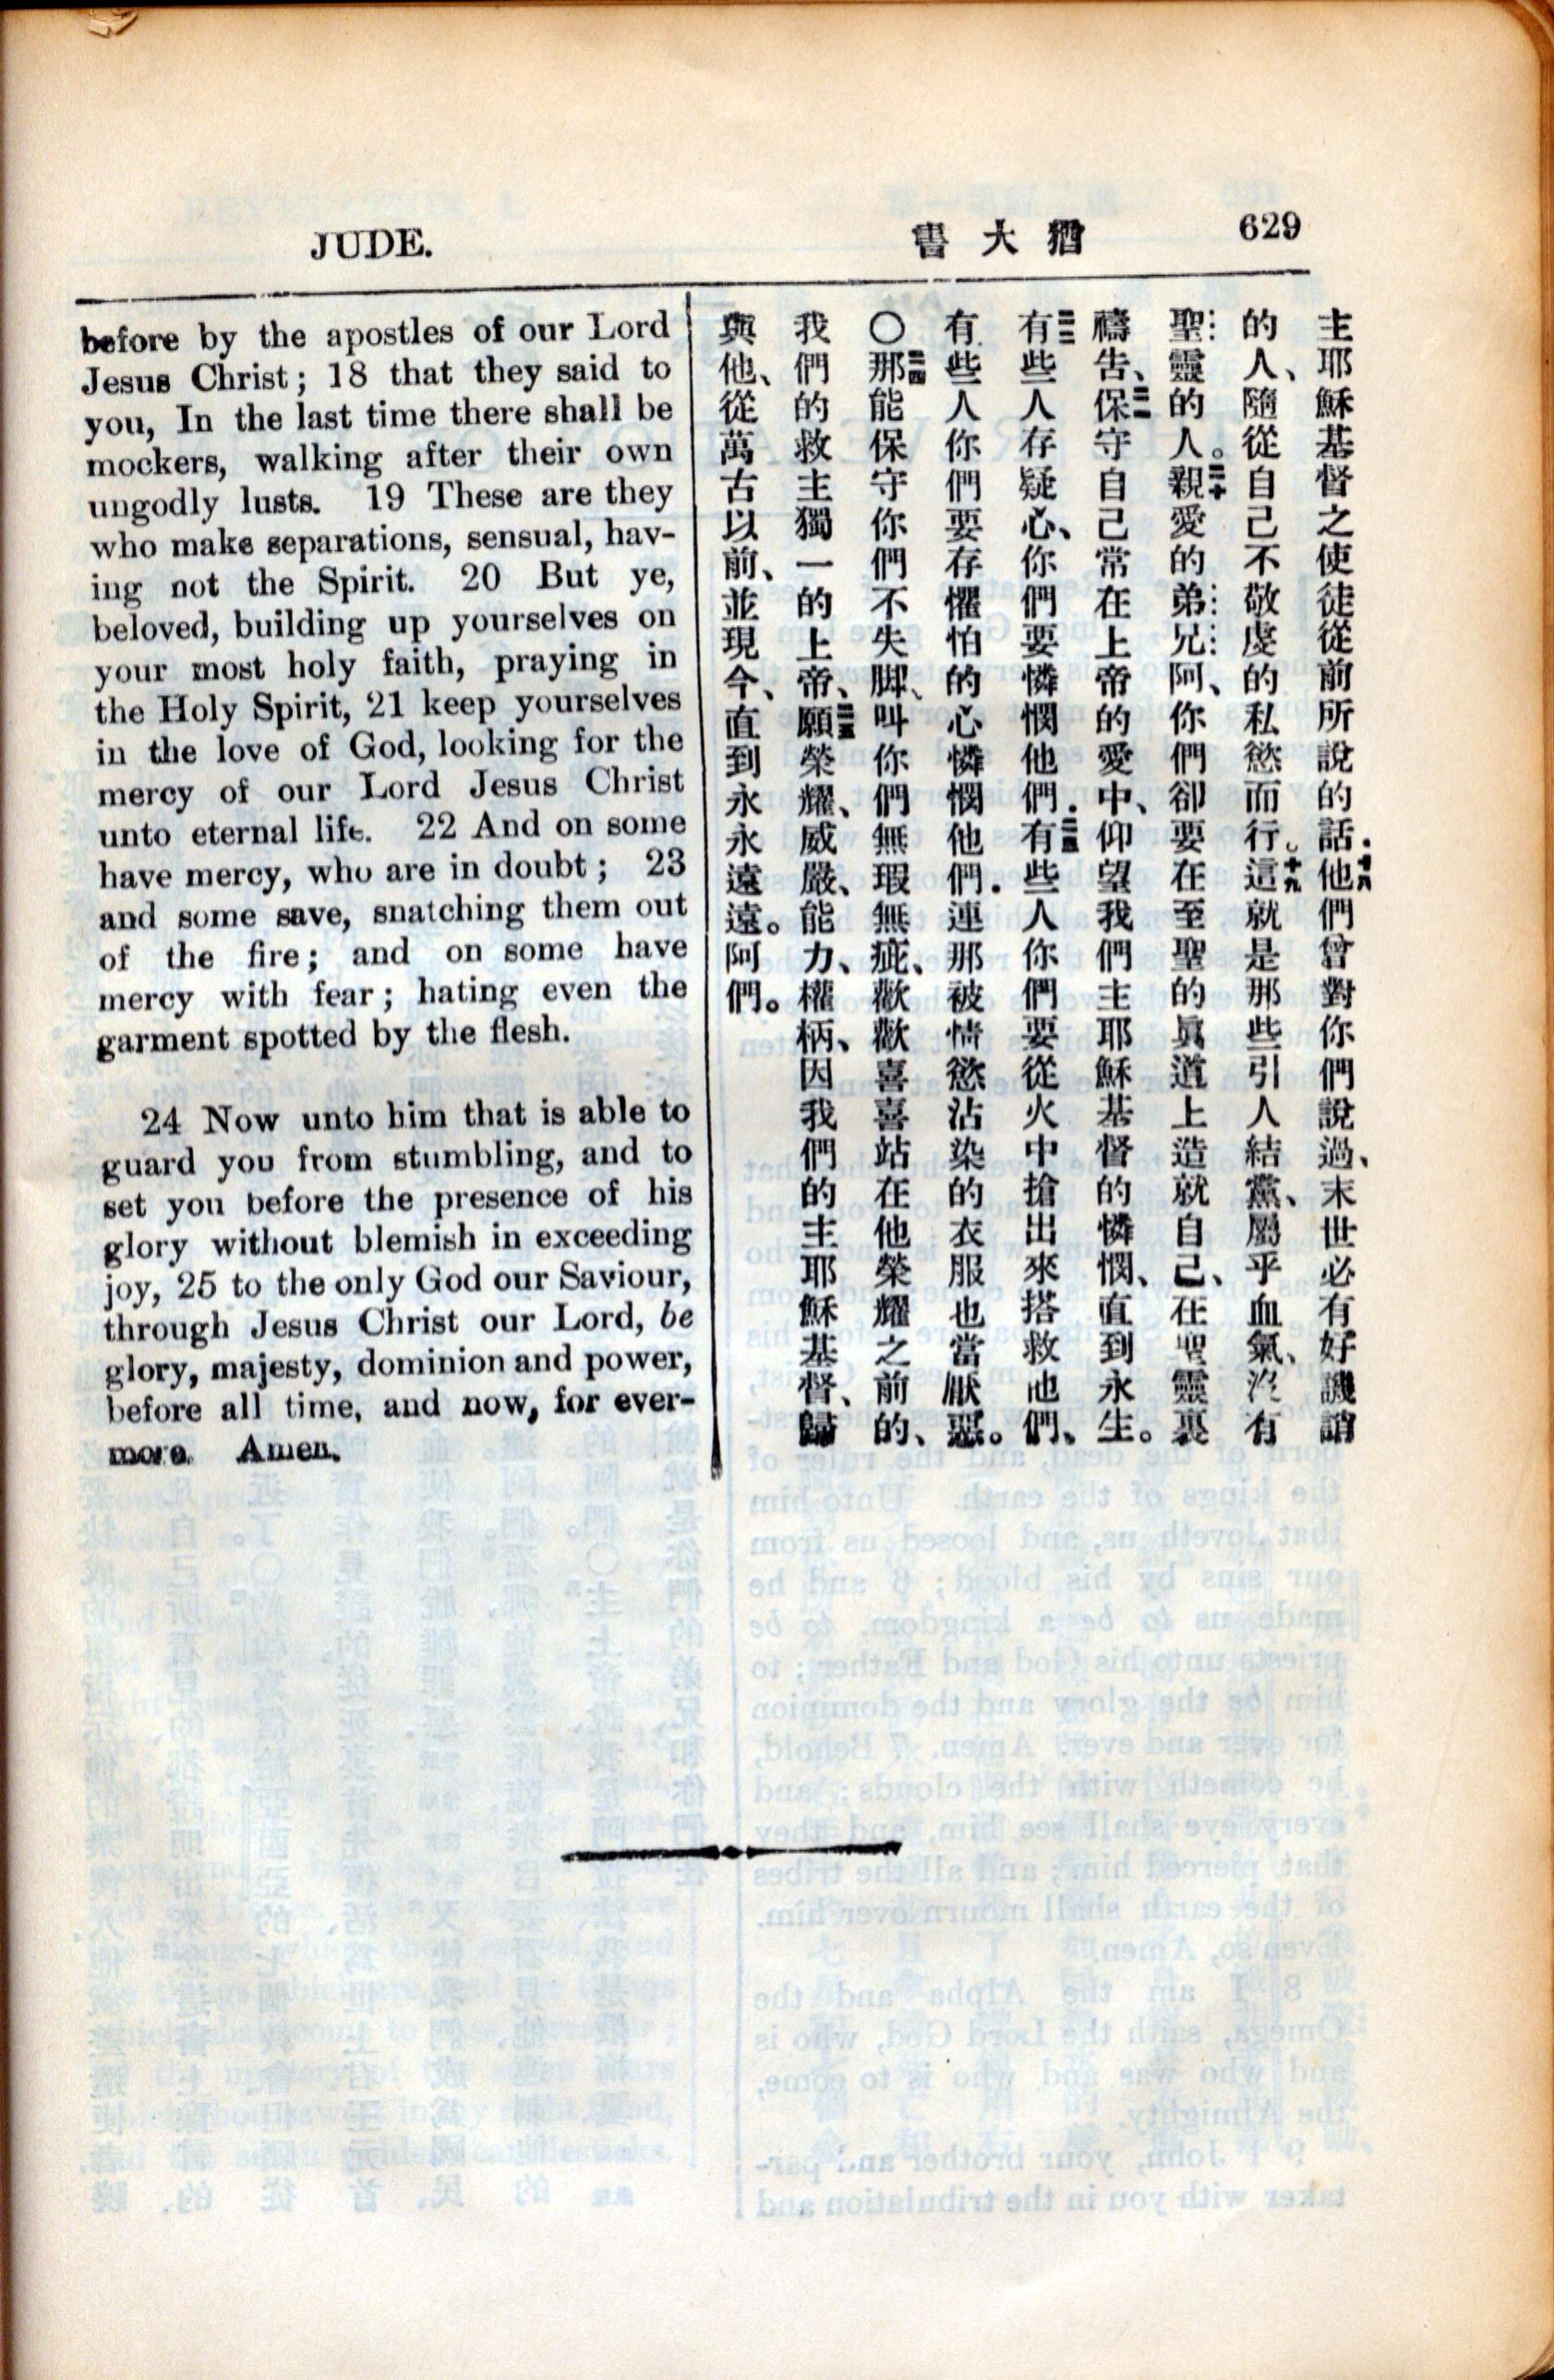 JUDE.
猶大書
629
before by the apostles of our Lord
Jesus Christ; 18 that they said to
you, In the last time there shall be
mockers, walking after their own
ungodly lusts. 19 These are they
who make separations, sensual, hav-
ing not the Spirit. 20 But ye,
beloved, building up yourselves on
your most holy faith, praying in
the Holy Spirit, 21 keep yourselves
in the love of God, looking for the
mercy of our Lord Jesus Christ
unto eternal life. 22 And on some
have mercy, who are in doubt; 23
and some save, snatching them out
of the fire; and on some have
mercy with fear; hating even the
garment spotted by the flesh.
24 Now unto him that is able to
guard you from stumbling, and to
set you before the presence of his
glory without blemish in exceeding
joy, 25 to the only God our Saviour,
through Jesus Christ our Lord, be
glory, majesty, dominion and power,
before all time, and now, for ever-
more. Amen.
主耶穌基督之使徒從前所說的話．十八他們曾對你們說過、末世必有好譏誚
的人、隨從自己不敬虔的私慾而行。十九這就是那些引人結黨、屬乎血氣、沒有
聖靈的人。二十親愛的弟兄阿、你們卻要在至聖的眞道上造就自己、在聖靈裏
禱告、二一保守自己常在上帝的愛中、仰望我們主耶穌基督的憐憫、直到永生。
二二有些人存疑心、你們要憐憫他們．二三有些人你們要從火中搶出來搭救他們、
有些人你們要存懼怕的心憐憫他們．連那被情慾沾染的衣服也當厭惡。
〇二四那能保守你們不失脚、叫你們無瑕無疵、歡歡喜喜站在他榮耀之前的、
我們的救主獨一的上帝、二五願榮耀、威嚴、能力、權柄、因我們的主耶穌基督、歸
與他、從萬古以前、並現今、直到永永遠遠。阿們。